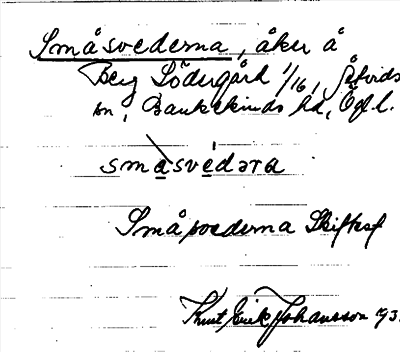 Småsvederna, åker å
Berg Södergård 1/16, Åtvids
sn, Bankekinds hd, Ögl.
småsvedəra
Småsvederna Skiftesf
Knut Erik Johansson 93.